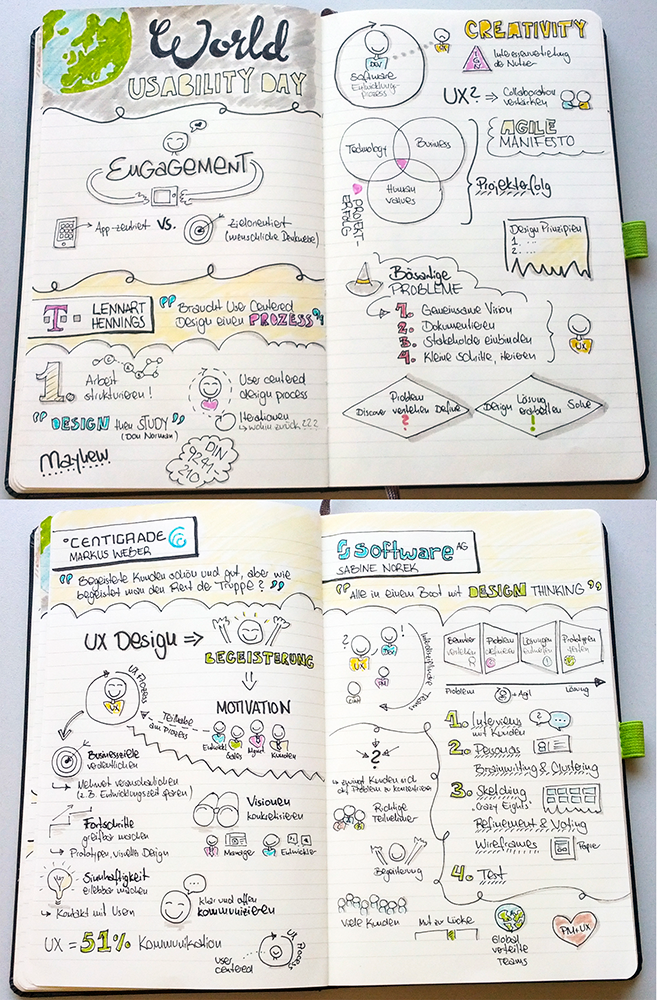 World
USABILITY DAY
ENGAGEMENT
App-zentriert VS. Zielorientiert
(menschliche Denkweise)
T LENNART
HENNINGS
"Braucht User Centered
Design einen PROZESS"
1. Arbeit
strukturieren!
User centered
design process
Iterationen
↳ wohin zurück???
"DESIGN then STUDY"
(Don Norman)
Mayhew
DIN
9241
210
CREATIVITY
UX
Software
Entwicklungs-
prozess
UX
Interessenvertretung
der Nutzer
UX² → Collaboration
verstärken
Technology
Business
Human
Values
PROJEKT-
ERFOLG
AGILE
MANIFESTO
Projekterfolg
Design Prinzipien
1. ...
2. ...
Bösartige
PROBLEME
1. Gemeinsame Vision
2. Dokumentieren
3. Stakeholder einbinden
4. Kleine schritte, iterieren
UX
Problem
Discover verstehen Define
?
Lösung
Design erarbeiten Solve
!
CENTIGRADE
MARKUS WEBER
"Begeisterte Kunden schön und gut, aber wie
begeistert man den Rest der Truppe?"
UX Design ⇒ BEGEISTERUNG
UX PROZESS
UX
MOTIVATION
Teilhabe
am Prozess
Entwickl.
Sales
Mgmt
Kunden
Businessziele
verdeutlichen
↳ Mehrwert veranschaulichen
(z.B. Entwicklungszeit sparen)
Fortschritte
greifbar machen
↳ Prototypen, visuelles Design
Visionen
konkretisieren
Manager
Entwickler
Sinnhaftigkeit
erlebbar machen
↳ Kontakt mit Usern
Klar und offen
kommunizieren
UX = 51% Kommunikation
user
centered
UX Prozess
software AG
SABINE NOREK
"Alle in einem Boot mit DESIGN THINKING"
?
!
UX
DEV
PM
Interdisziplinäre
Teams
Benutzer
verstehen
Problem
definieren
Lösungen
entwickeln
Prototypen
testen
Problem
Agil
Lösung
1. Interviews
mit Kunden
2. Personas
Brainwriting & Clustering
3. Sketching
"Crazy Eights"
Refinement & Voting
Wireframes
Papier
4. Test
?
↳ zwingt Kunden sich
auf Problem zu konzentrieren
Richtige
Teilnehmer
Begeisterung
Viele Kunden
Mut zur Lücke
Global
verteilte
Teams
PM+UX